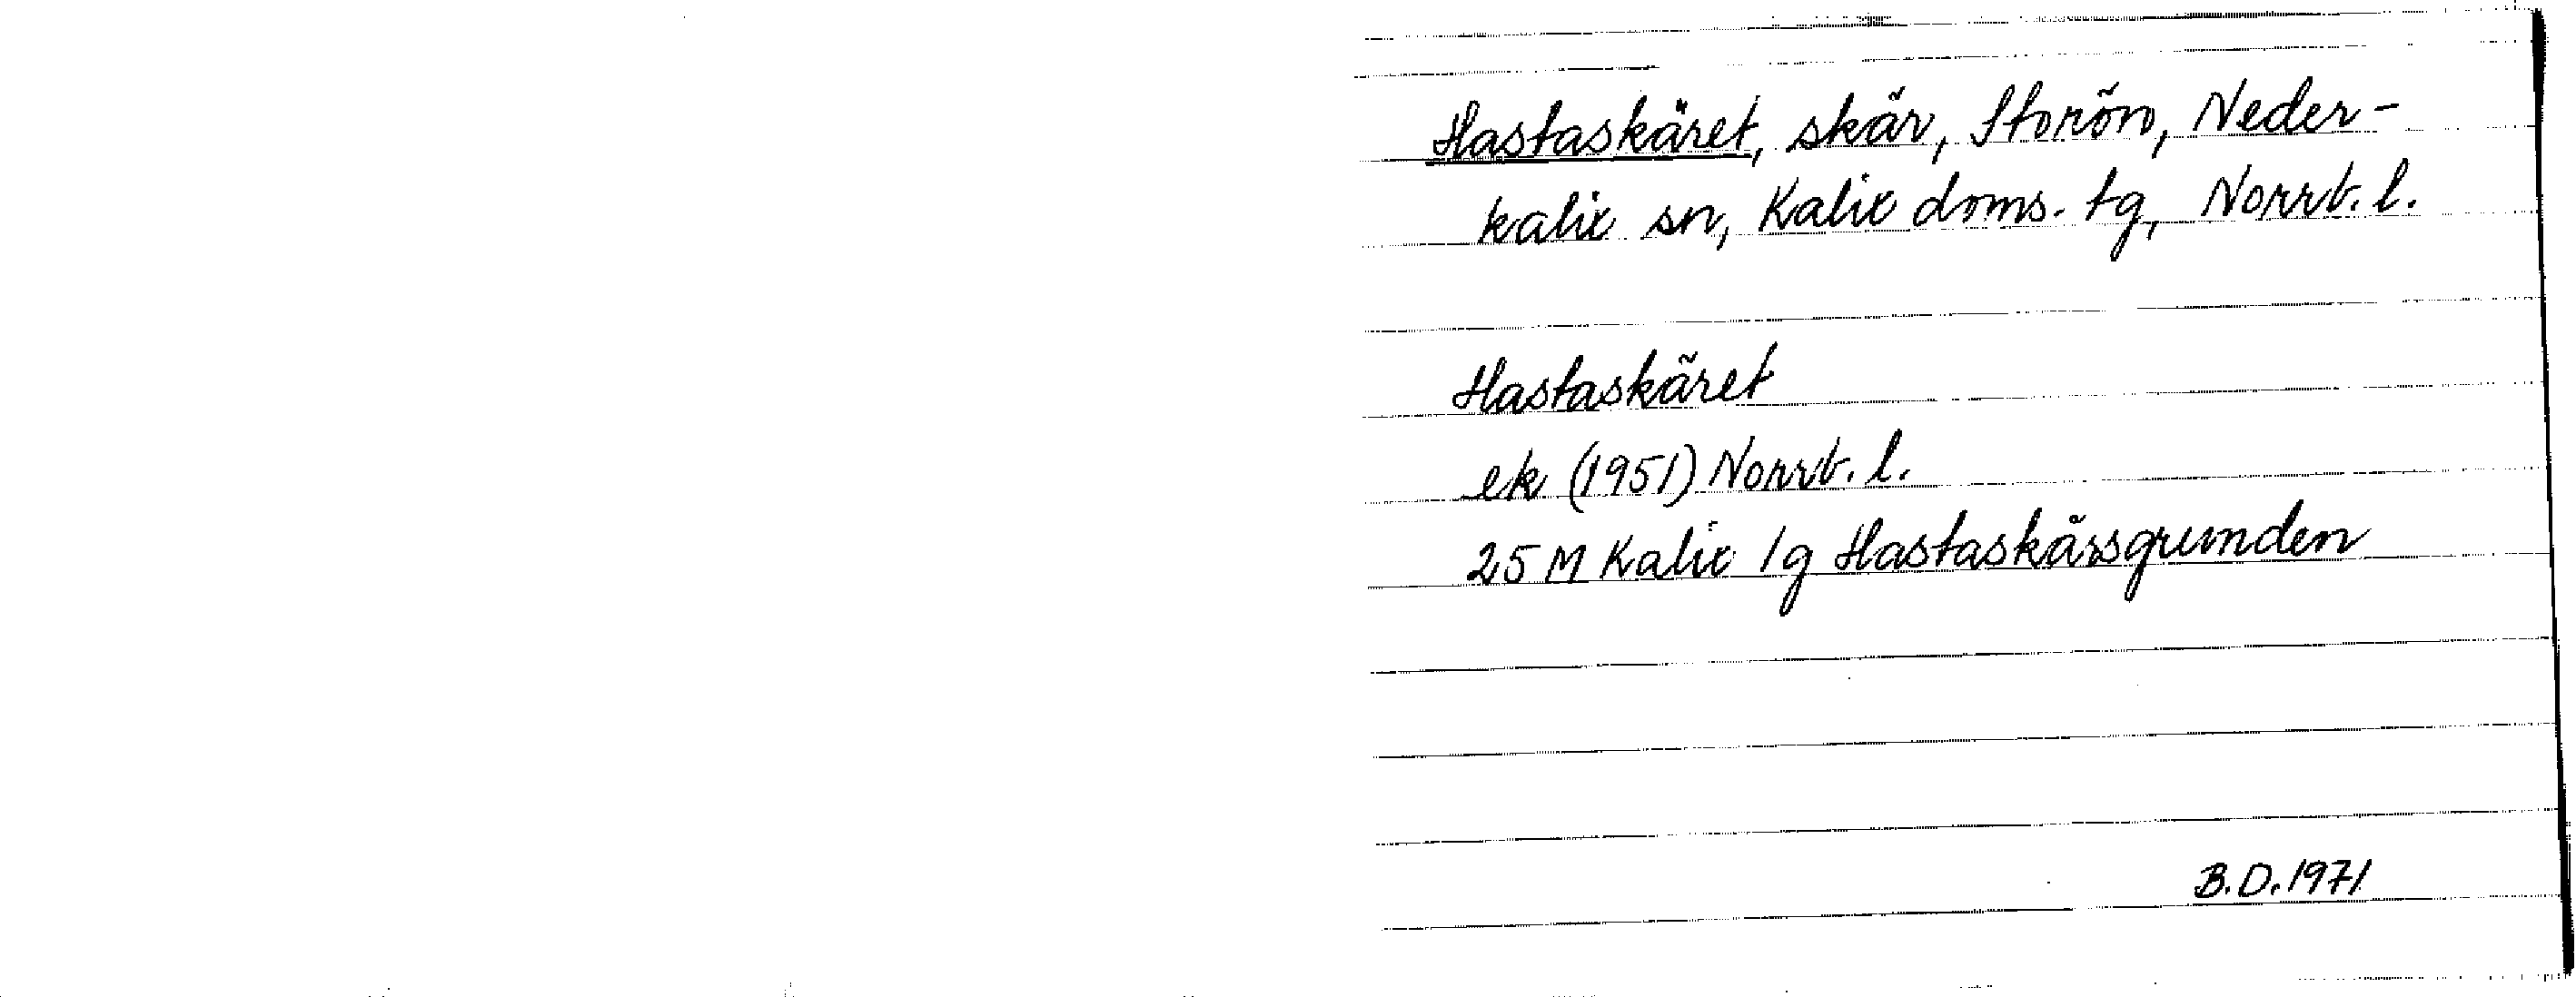 Hastaskäret, skär, Storön, Neder-
kalix sn, Kalix doms. tg, Norrb. l.
Hastaskäret
ek (1951) Norrb. l.
25 M Kalix 1g Hastaskärsgrunden
B.D. 1971